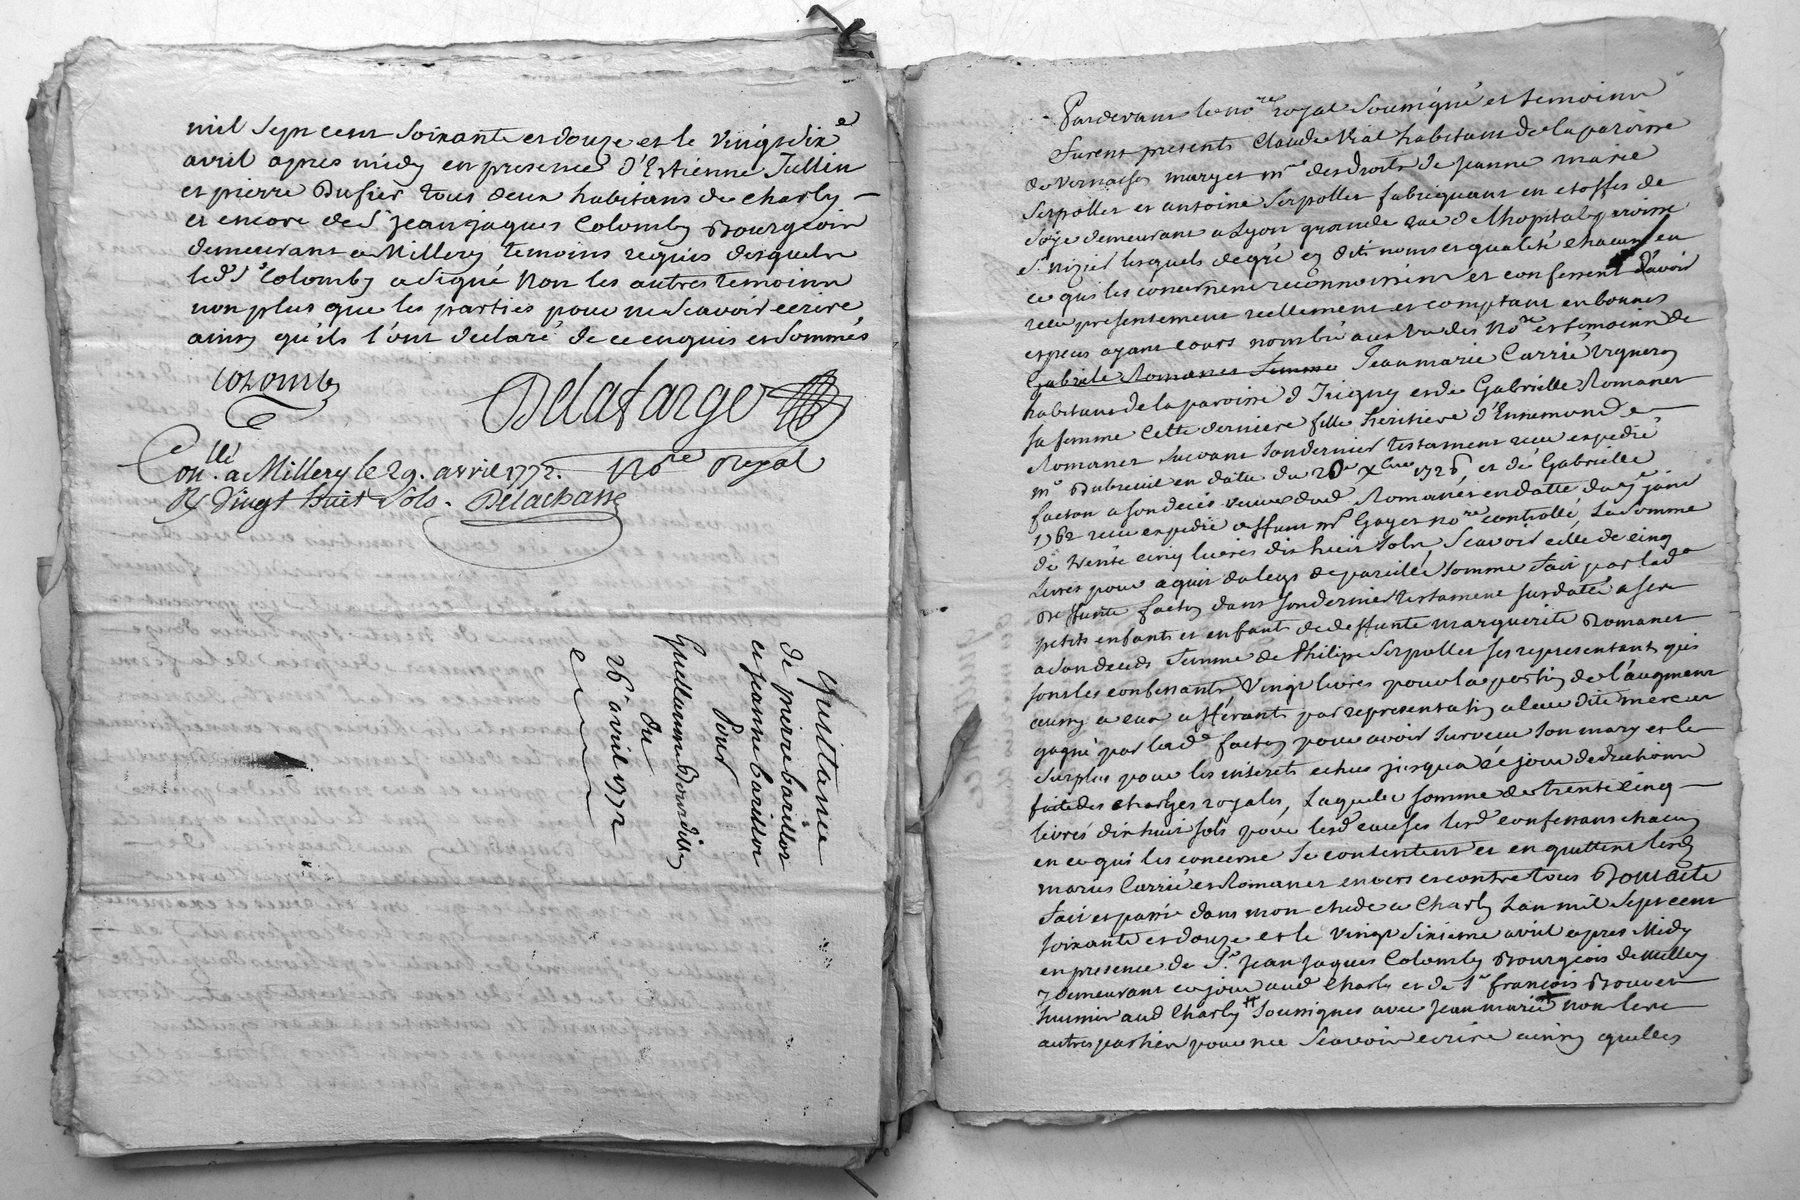 mil sept cent soixante et douze et le vingt six e
avril apres midy en presence d'Estienne Jullin
et pierre Dufier tous deux habitans de Charly –
et encore de Sr jean jaques Colomby Bourgeois
demeurant a Millery temoins requis desquels
led. Sr Colomby a signé non les autres temoins
non plus que les parties pour ne scavoir ecrire
ainsy qu'ils l'ont declaré de ce enquis et sommés
Colomby
Delafarge
Conllé a Millery le 29. avril 1772. Nore Royal
R vingt huit sols. Delachasse
Quittance
de pierre barillot
et jeanne barillot
pour
Guillaume Bourdin
du
26e avril 1772
Pardevant le nore royal soussigné et temoins
furent presents Claude Vial habitant de la paroisse
de Vernaison mary et me des droits de Jeanne marie
Serpollet et antoine Serpollet fabriquant en etoffes de
soye demeurant a Lyon grande rue de l'hopital paroisse
St nizier lesquels de gré ez dits noms et qualité chacun en
ce qui les concernent reconnoissent et confessent d'avoir
receu presentement reellement et comptant en bonnes
especes ayant cours nombré aux vu des Nore et temoins de
Gabriele Romanet femme Jean marie Carrié vigneron
habitant de la paroisse d'Irigny et de Gabrielle Romanet
sa femme cette derniere fille heritiere d'Ennemond
Romanet suivant son dernier testament receu expedié
me Dubreuil en datte du Xbre 1726, et de Gabrielle
facton a son deces veuve dud. Romanet en datte du juin
1762 receu expedié deffunt me Gayet nore controllé, La somme
de trente cinq livres dix huit sols, scavoir celle de cinq
livres pour aquit du legs de pareille somme fait par lade
deffunte facton dans son dernier testament susdatté a ses
petits enfants et enfants de deffunte marguerite Romanet
a son deces femme de Philipe Serpollet ses representants qui
sont les confessants, vingt livres pour la portion de l'augment
aussy a eux afférante par representation a leur dite mere et
gagné par lade facton pour avoir survecu son mary et le
surplus pour les interets echus jusqua ce jour deduction
faite des charges royales, Laquelle somme de trente cinq –
livres dix huit sols pour lesd causes lesd confessans chacun
en ce qui les concerne se contentent et en quittent lesd
mariés Carrié et Romanet envers et contre tous Dont acte
fait et passé dans mon etude a Charly Lan mil sept cent
soixante et douze et le vingt sixieme avril apres Midy
en presence de Sr Jean Jaques Colomby Bourgeois de Millery
y demeurant ce jour aud Charly et de Sr francois Bouvet
aud Charly soussignes avec jean marie non les
autres parties pour ne scavoir ecrire ainsy quelles